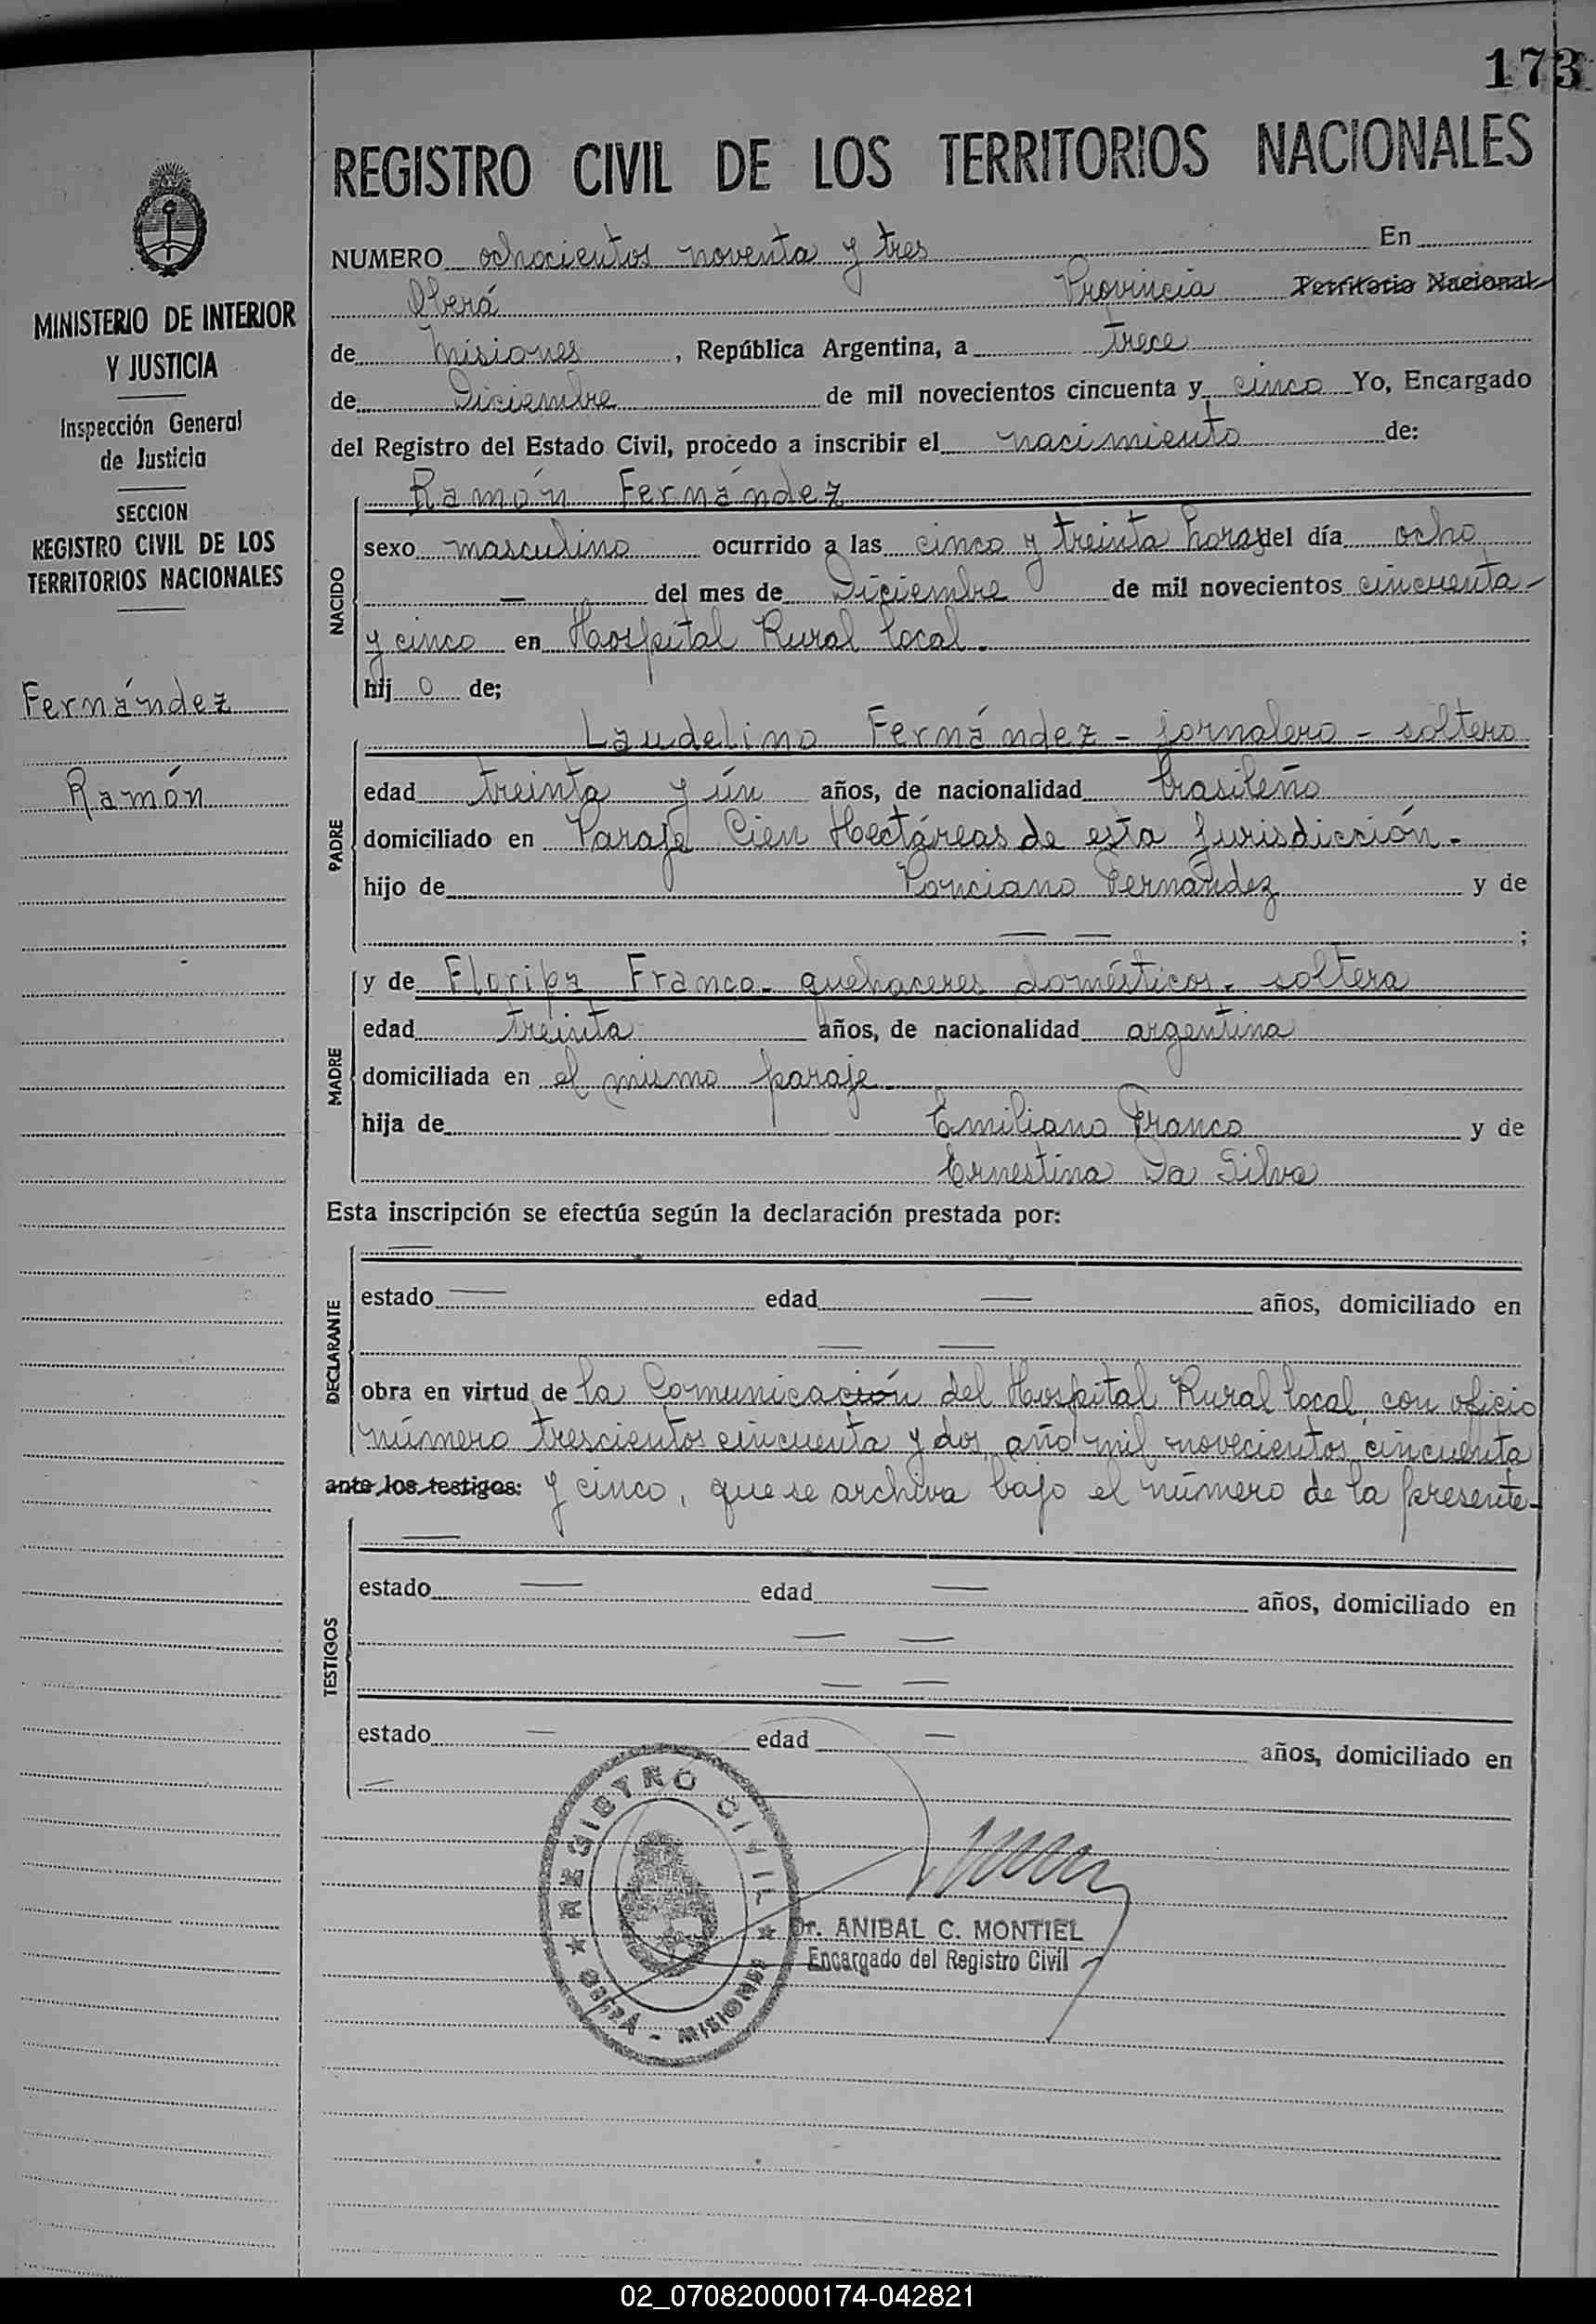 173
REGISTRO CIVIL DE LOS TERRITORIOS NACIONALES
MINISTERIO DE INTERIOR
Y JUSTICIA
Inspección General
de Justicia
SECCION
REGISTRO CIVIL DE LOS
TERRITORIOS NACIONALES
Fernández
Ramón
NUMERO ochocientos noventa y tres En
Oberá Provincia Territorio Nacional
de Misiones, República Argentina, a trece
de Diciembre de mil novecientos cincuenta y cinco Yo, Encargado
del Registro del Estado Civil, procedo a inscribir el nacimiento de:
NACIDO
Ramón Fernández
sexo masculino ocurrido a las cinco y treinta horas del día ocho
— del mes de Diciembre de mil novecientos cincuenta -
y cinco en Hospital Rural local.
hijo de;
PADRE
Laudelino Fernández - jornalero - soltero
edad treinta y ún años, de nacionalidad brasileño
domiciliado en Paraje Cien Hectáreas de esta Jurisdicción.-
hijo de Ponciano Fernández y de
— — ;
MADRE
y de Floripa Franco - quehaceres domésticos - soltera
edad treinta años, de nacionalidad argentina
domiciliada en el mismo paraje.
hija de Emiliano Franco y de
Ernestina Da Silva
Esta inscripción se efectúa según la declaración prestada por:
DECLARANTE
—
estado — edad — años, domiciliado en
— —
obra en virtud de la Comunicación del Hospital Rural local, con oficio
número trescientos cincuenta y dos, año mil novecientos cincuenta
ante los testigos: y cinco, que se archiva bajo el número de la presente.-
TESTIGOS
—
estado — edad — años, domiciliado en
— —
— —
estado — edad — años, domiciliado en
—
REGISTRO CIVIL
OBERÁ - MISIONES
Dr. ANIBAL C. MONTIEL
Encargado del Registro Civil
02_070820000174-042821